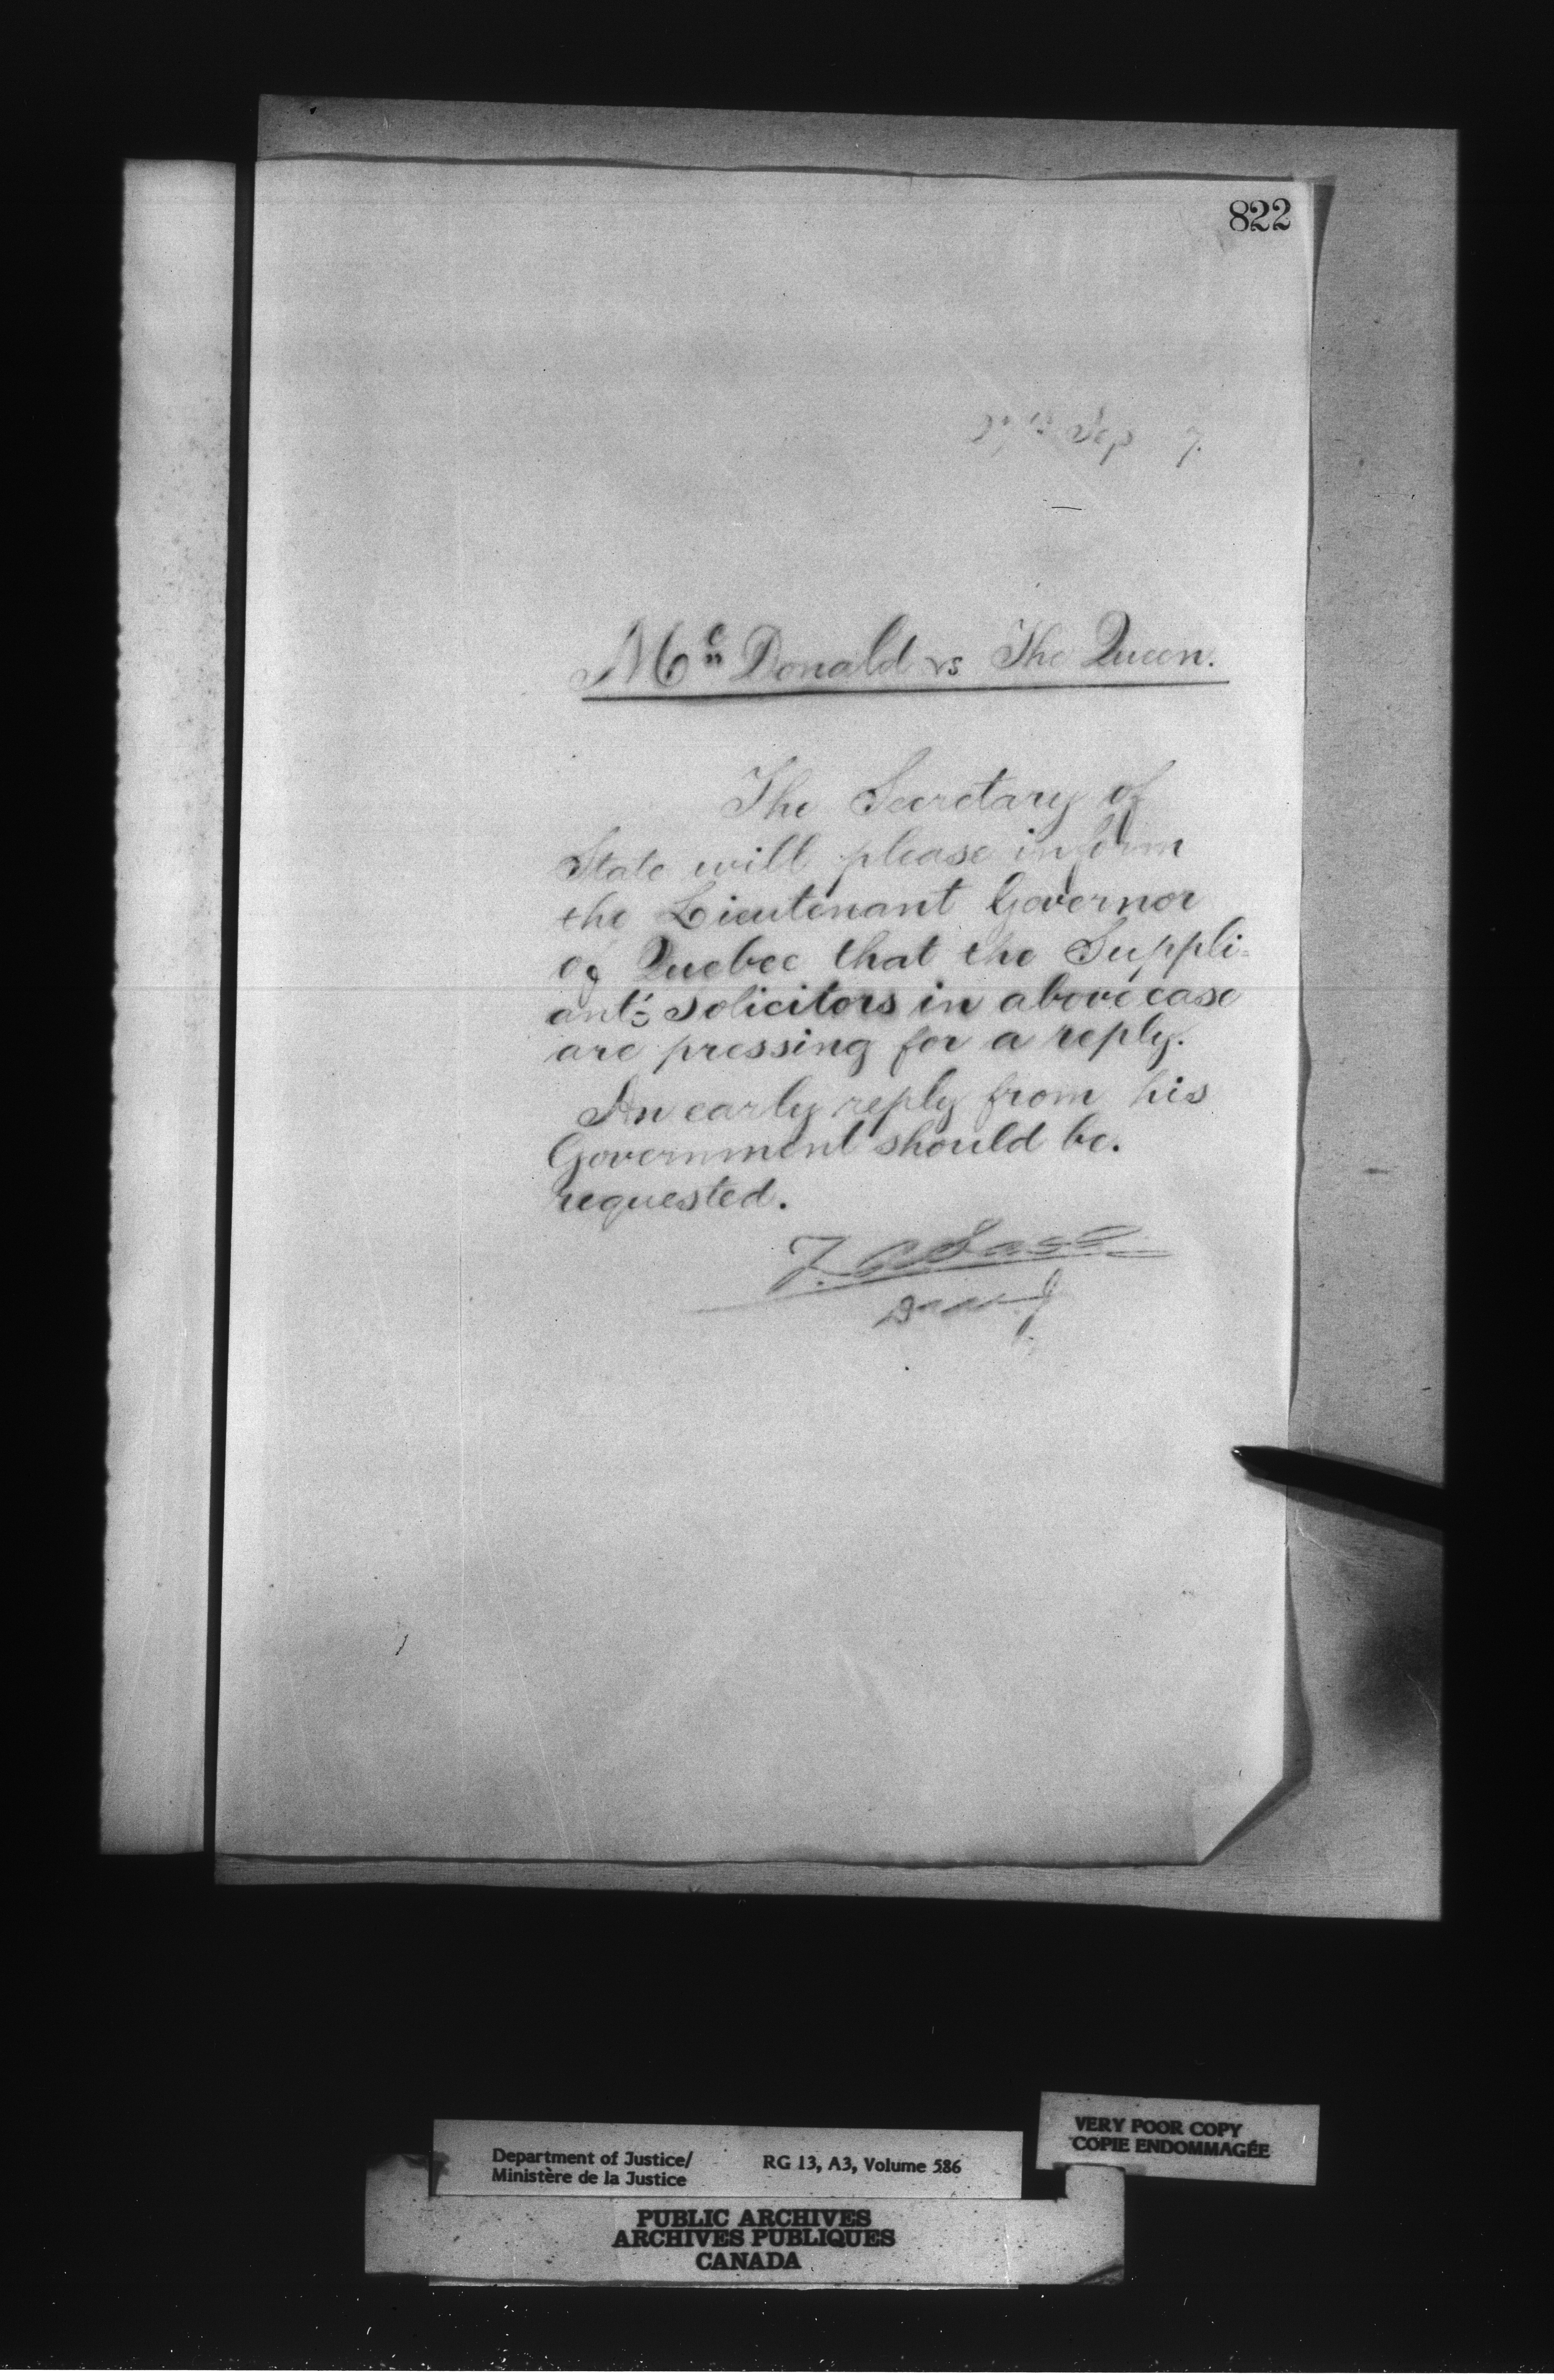 822
Sep 7.
Mc Donald vs The Queen.
The Secretary of
State will please inform
the Lieutenant Governor
of Quebec that the Suppli-
ant's Solicitors in above case
are pressing for a reply.
An early reply from his
Government should be.
requested.
Department of Justice/
Ministère de la Justice
RG 13, A3, Volume 586
VERY POOR COPY
COPIE ENDOMMAGÉE
PUBLIC ARCHIVES
ARCHIVES PUBLIQUES
CANADA